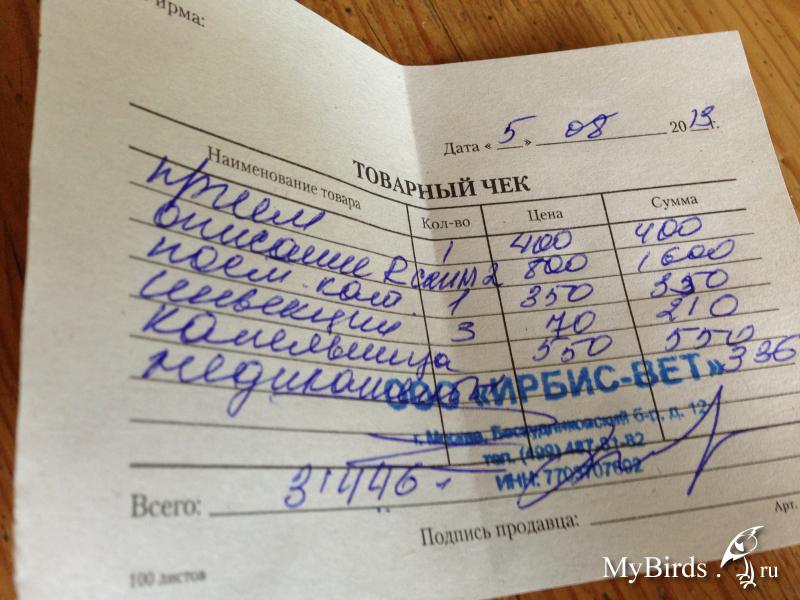 Фирма:
Дата « 5 » 08 2013 г.
ТОВАРНЫЙ ЧЕК
Наименование товара Кол-во Цена Сумма
прием 1 400 400
описание R схим 2 800 1600
посм. кат. 1 350 350
инъекции 3 70 210
капельница 550 550
медикаменты 336
ООО «ИРБИС-ВЕТ»
г. Москва, Бескудниковский б-р, д. 12
тел. (499) 487-81-82
ИНН: 7703707692
Всего: 3446-
Подпись продавца:
Арт.
100 листов
MyBirds.ru